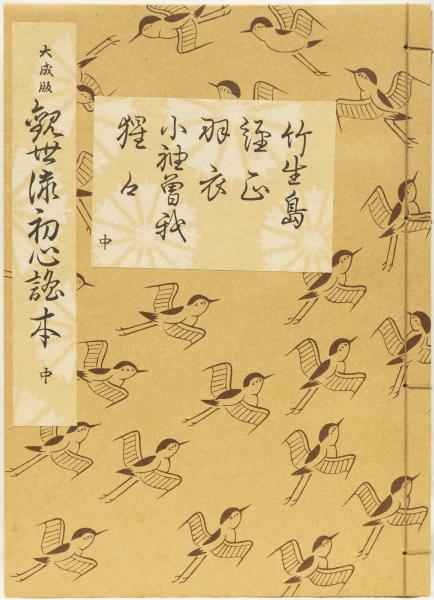 竹生島
經正
羽衣
小袖曽我
猩々
中
大成版
観世流初心謡本
中